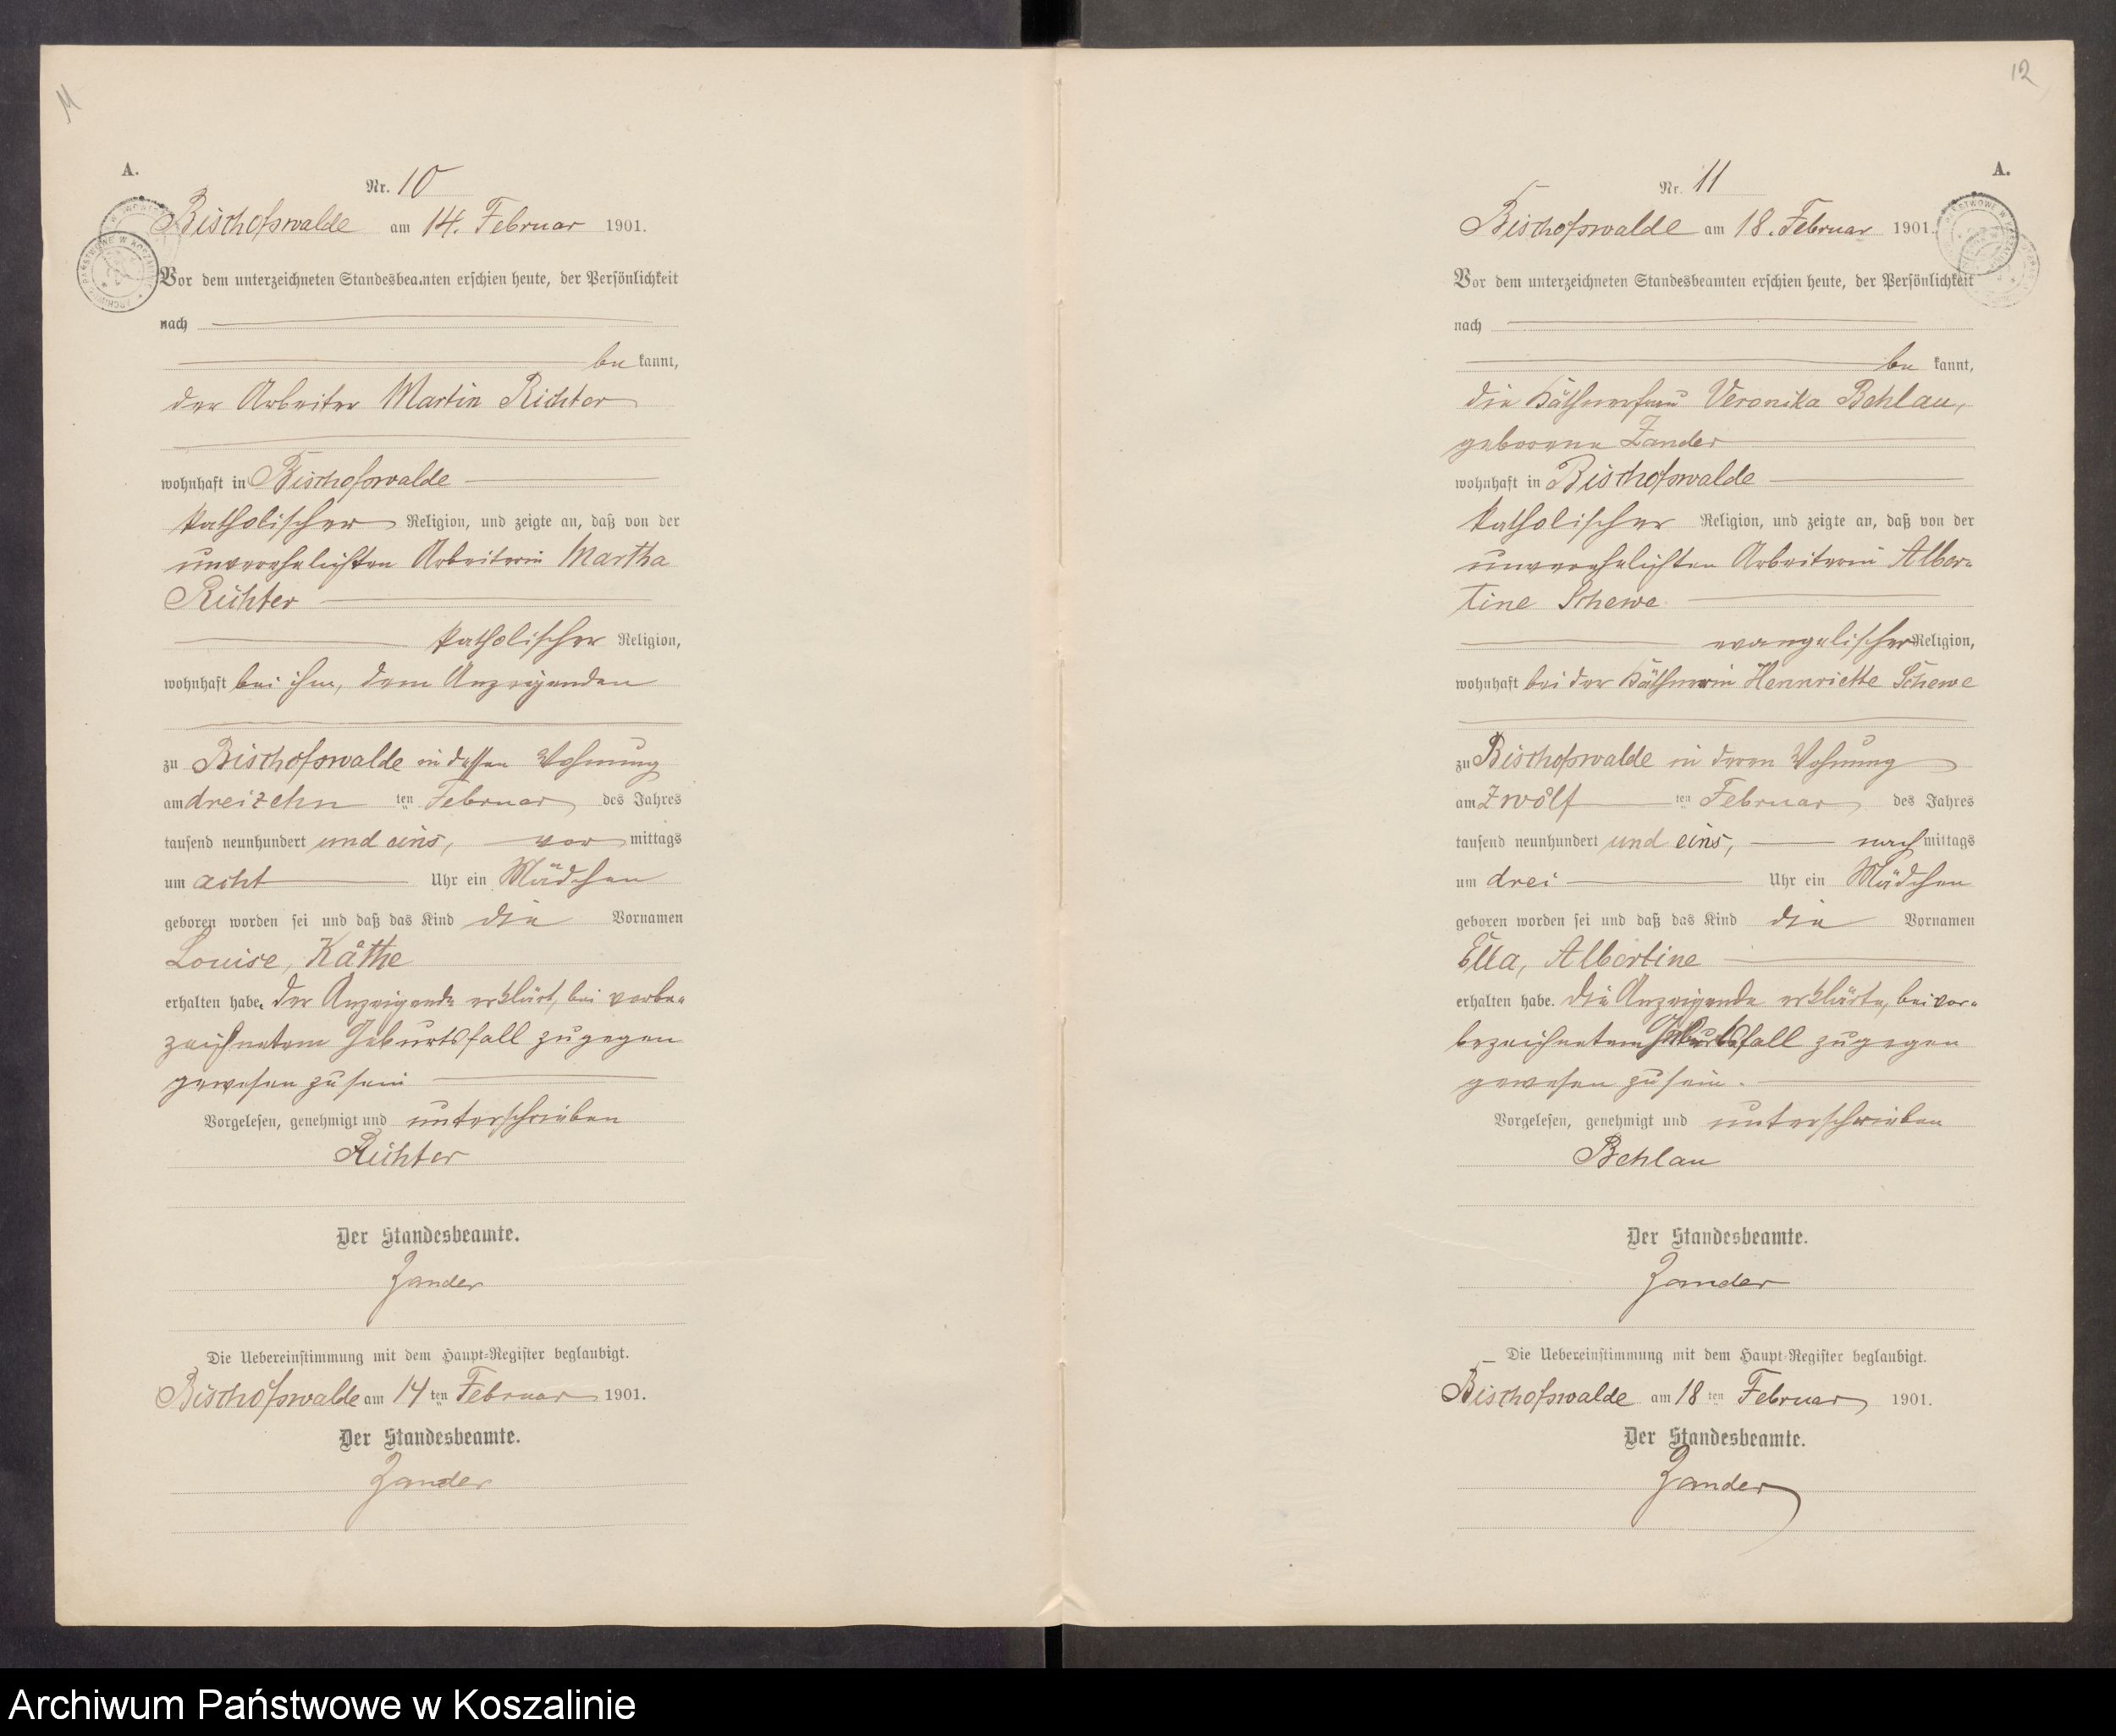 11
A.
Nr. 10
Bischofswalde am 14. Februar 1901.
Vor dem unterzeichneten Standesbeamten erschien heute, der Persönlichkeit
nach
be kannt,
der Arbeiter Martin Richter
wohnhaft in Bischofswalde
katholischer Religion, und zeigte an, daß von der
unverehelichten Arbeiterin Martha
Richter
katholischer Religion,
wohnhaft bei ihm, dem Anzeigenden
zu Bischofswalde in dessen Wohnung
am dreizehn ten Februar des Jahres
tausend neunhundert und eins, vor mittags
um acht Uhr ein Mädchen
geboren worden sei und daß das Kind die Vornamen
Louise, Käthe
erhalten habe. Der Anzeigende erklärt, bei vorbe-
zeichnetem Geburtsfall zugegen
gewesen zu sein
Vorgelesen, genehmigt und unterschrieben
Richter
Der Standesbeamte.
Zander
Die Uebereinstimmung mit dem Haupt-Register beglaubigt.
Bischofswalde am 14 ten Februar 1901.
Der Standesbeamte.
Zander
12
A.
Nr. 11
Bischofswalde am 18. Februar 1901.
Vor dem unterzeichneten Standesbeamten erschien heute, der Persönlichkeit
nach
be kannt,
die Käthnerfrau Veronika Behlau,
geborene Zander
wohnhaft in Bischofswalde
katholischer Religion, und zeigte an, daß von der
unverehelichten Arbeiterin Alber-
tine Schewe
evangelischer Religion,
wohnhaft bei der Käthnerin Hennriette Schewe
zu Bischofswalde in deren Wohnung
am zwölf ten Februar des Jahres
tausend neunhundert und eins, nach mittags
um drei Uhr ein Mädchen
geboren worden sei und daß das Kind die Vornamen
Ella, Albertine
erhalten habe. Die Anzeigende erklärte, bei vor-
bezeichnetem Geburtsfall zugegen
gewesen zu sein.
Vorgelesen, genehmigt und unterschrieben
Behlau
Der Standesbeamte.
Zander
Die Uebereinstimmung mit dem Haupt-Register beglaubigt.
Bischofswalde am 18 ten Februar 1901.
Der Standesbeamte.
Zander
Archiwum Państwowe w Koszalinie